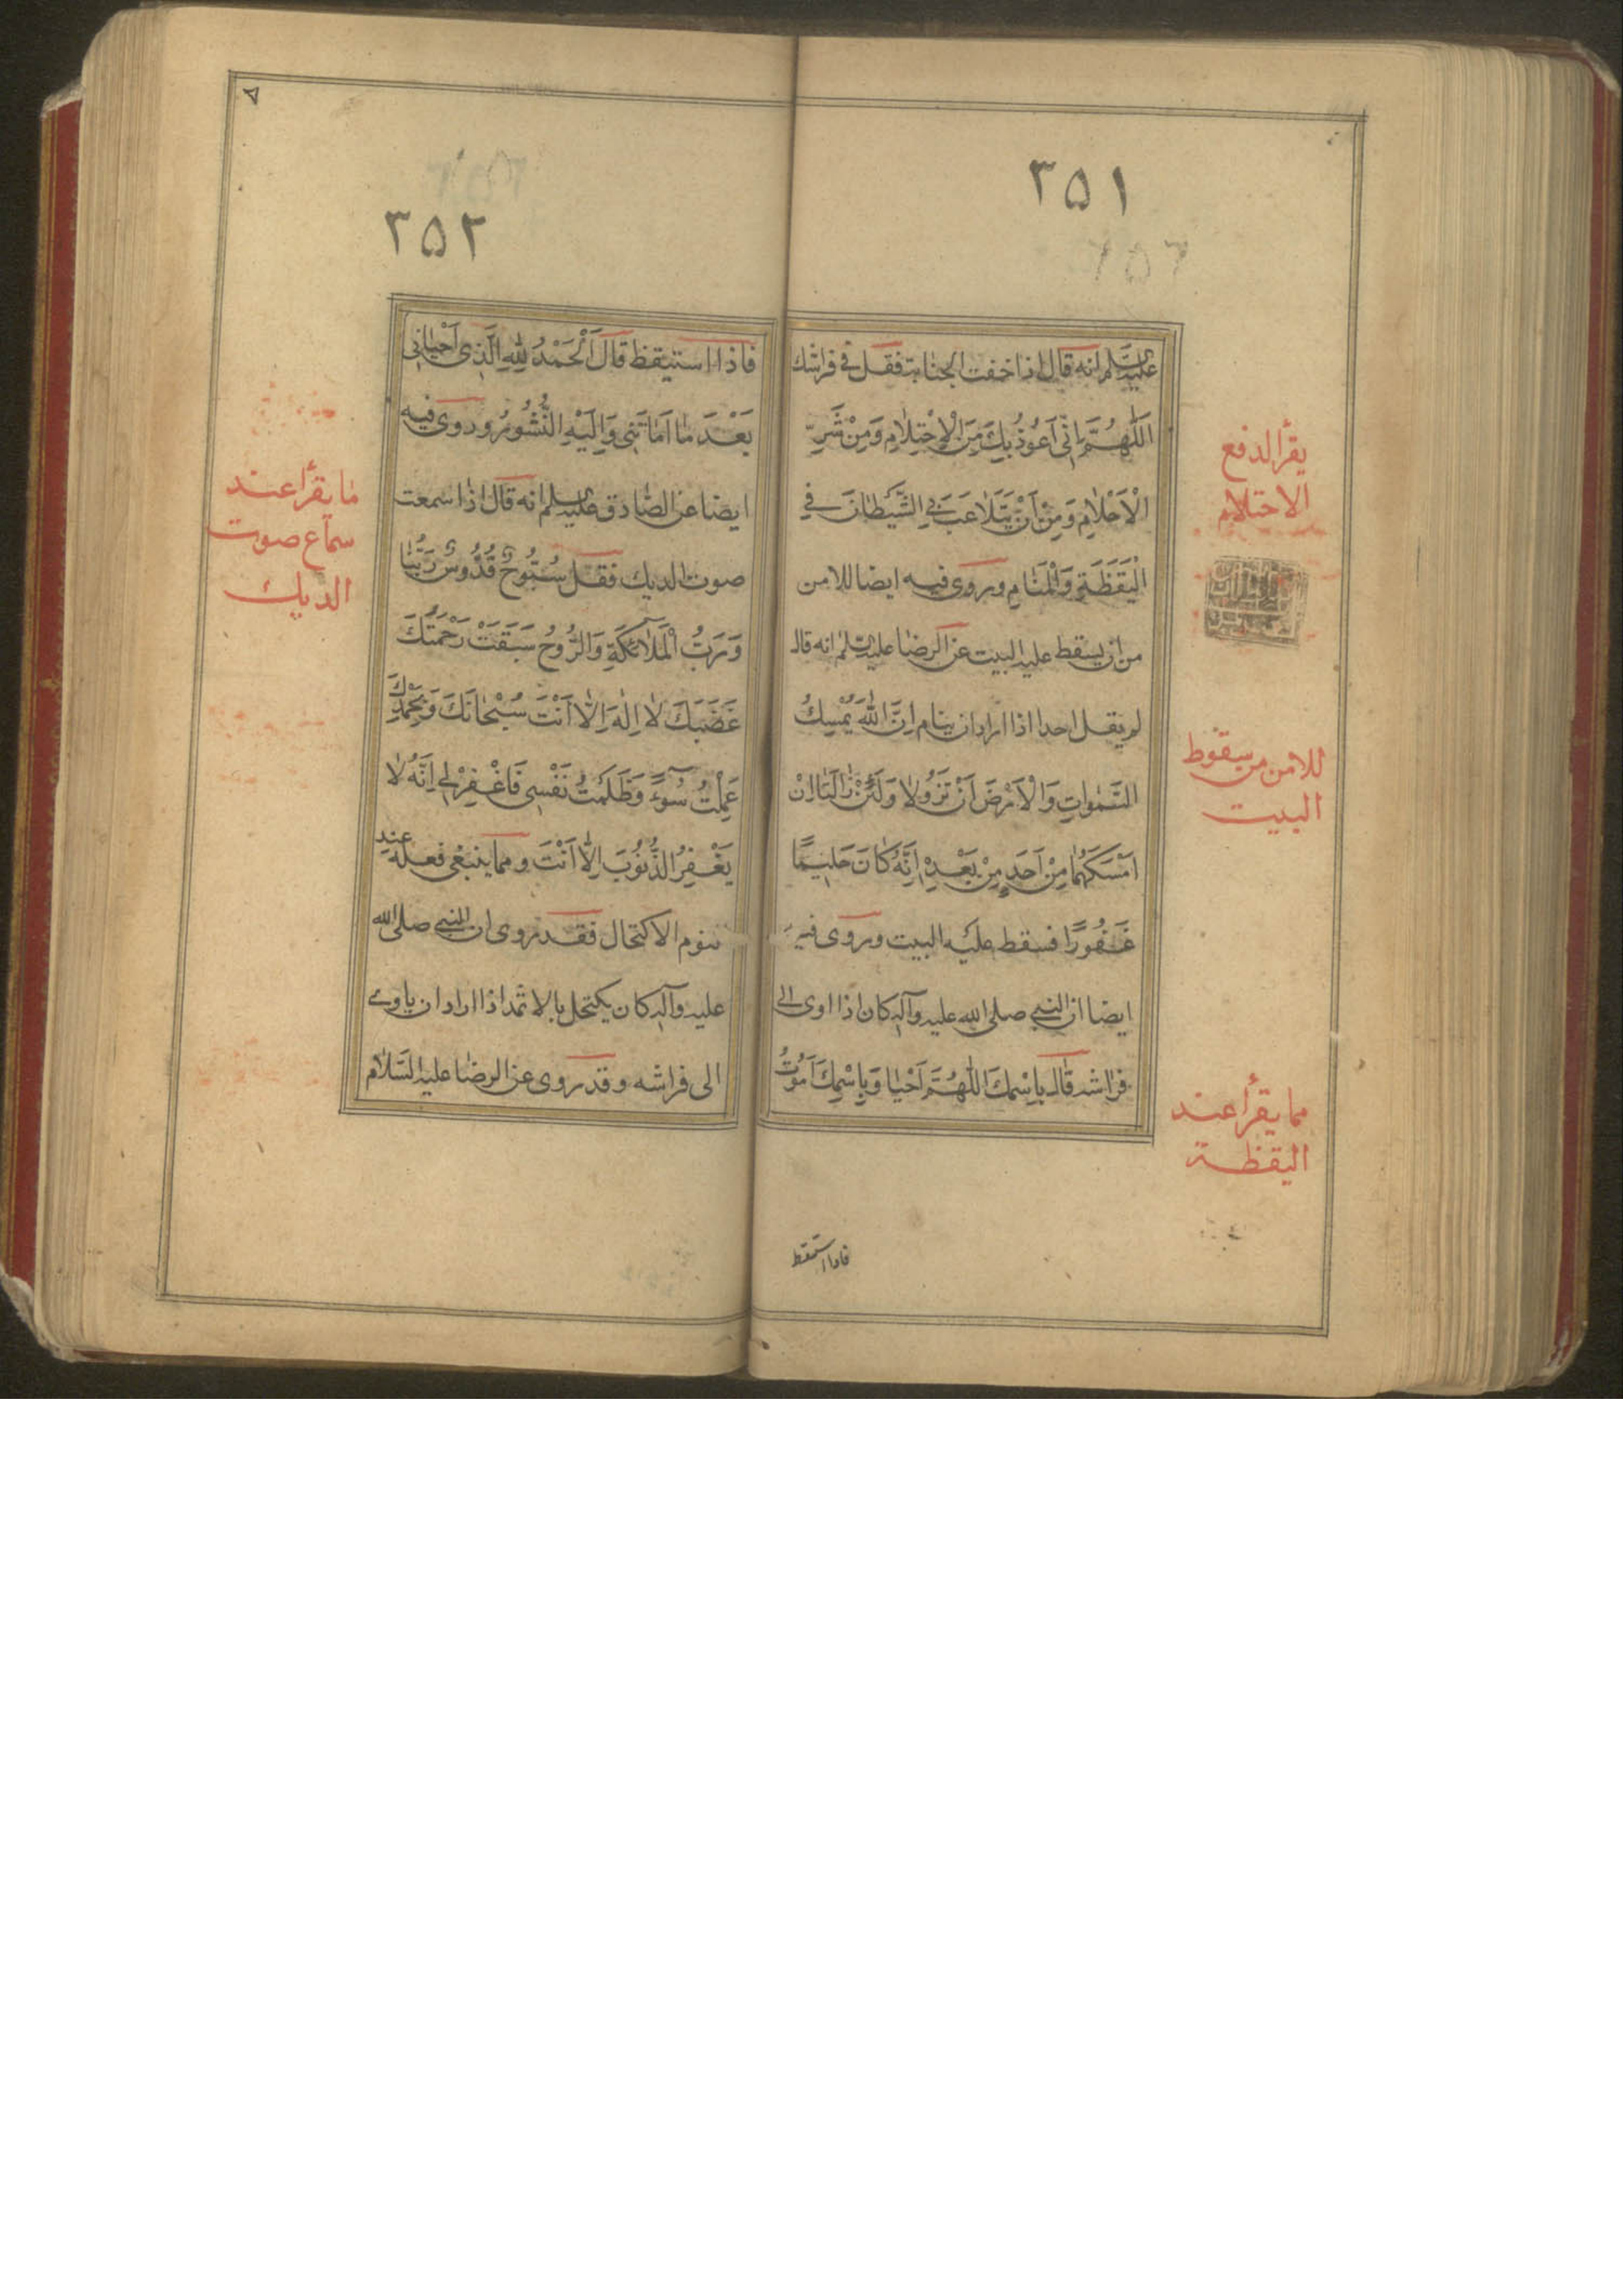 ٣٥١
عليه السلم انه قال اذا خفت الجنابة فقل في فراشك
اَللّٰهُمَّ اِنّى اَعُوذُ بِكَ مِنَ الْاِحْتِلٰامِ وَمِنْ شَرِّ
الْاَحْلٰامِ وَمِنْ اَنْ يَتَلٰاعَبَ بِىَ الشَّيْطٰانُ فِي
الْيَقَظَةِ وَالْمَنٰامِ وروى فيه ايضا للامن
من ان يسقط عليه البيت عن الرضا عليه السلم انه قال
لم يقل احد اذا اراد ان ينام اِنَّ اللّٰهَ يُمْسِكُ
السَّمٰوٰاتِ وَالْاَرْضَ اَنْ تَزُولٰا وَلَئِنْ زٰالَتٰا اِنْ
اَمْسَكَهُمٰا مِنْ اَحَدٍ مِنْ بَعْدِهِ اِنَّهُ كٰانَ حَلِيمًا
غَفُورًا فسقط عليه البيت وروى فيه
ايضا ان النبي صلى الله عليه وآله كان اذا اوى الى
فراشه قال بِاسْمِكَ اللّٰهُمَّ اَحْيٰا وَبِاسْمِكَ اَمُوتُ
يقرأ لدفع
الاحتلام
للامن من سقوط
البيت
مما يقرأ عند
اليقظة
فاذا استيقظ
٣٥٢
فاذا استيقظ قال اَلْحَمْدُ لِلّٰهِ الَّذِى اَحْيٰانِى
بَعْدَ مٰا اَمٰاتَنِى وَاِلَيْهِ النُّشُورُ وروى فيه
ايضا عن الصّادق عليه السلم انه قال اذا سمعت
صوت الديك فقل سُبُّوحٌ قُدُّوسٌ رَبُّنٰا
وَرَبُّ الْمَلٰائِكَةِ وَالرُّوحُ سَبَقَتْ رَحْمَتُكَ
غَضَبَكَ لٰا اِلٰهَ اِلّٰا اَنْتَ سُبْحٰانَكَ وَبِحَمْدِكَ
عَمِلْتُ سُوءً وَظَلَمْتُ نَفْسِى فَاغْفِرْ لِى اِنَّهُ لٰا
يَغْفِرُ الذُّنُوبَ اِلّٰا اَنْتَ ومما ينبغى فعله عند
النوم الاكتحال فقد روى ان النبي صلى الله
عليه وآله كان يكتحل بالاثمد اذا اراد ان ياوى
الى فراشه وقد روى عن الرضا عليه السّلام
مٰا يقرأ عند
سماع صوت
الديك